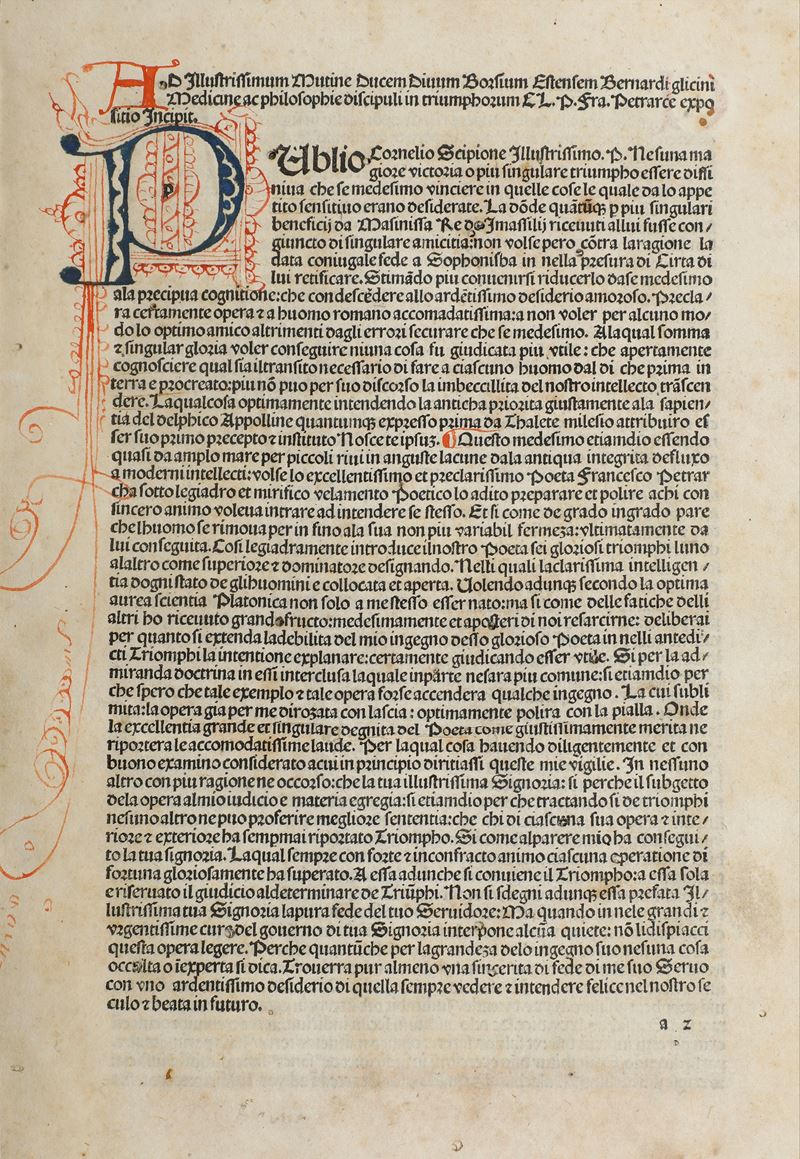 AD Illustrissimum Mutine Ducem Diuum Borsium Estensem Bernardi glicini
Medicine ac philosophie discipuli in triumphorum CL. P. Fra. Petrarce expo
sitio Incipit.
PUblio Cornelio Scipione Illustrissimo. P. Nesuna ma
giore victoria o piu singulare triumpho essere diffi
niua che se medesimo vinciere in quelle cose le quale da lo appe
tito sensitiuo erano desiderate. La dōde quātūqꝫ ꝑ piu singulari
beneficij da Masinissa Re de Imassilij riceuuti allui fusse con/
giuncto di singulare amicitia: non volse pero cōtra laragione la
data coniugale fede a Sophonisba in nella presura di Cirta di
lui retificare. Stimādo piu conuenirsi riducerlo dase medesimo
ala precipua cognitione: che condescēdere allo ardētissimo desiderio amoroso. Precla/
ra certamente opera ⁊ a huomo romano accomadatissima: a non voler per alcuno mo/
do lo optimo amico altrimenti dagli errori securare che se medesimo. Alaqual somma
⁊ singular gloria voler conseguire niuna cosa fu giudicata piu vtile: che apertamente
cognosciere qual sia iltransito necessario di fare a ciascuno huomo dal di che prima in
terra e procreato: piu nō puo per suo discorso la imbecillita del nostro intellecto trāscen
dere. Laqualcosa optimamente intendendo la anticha priorita giustamente ala sapien/
tia del delphico Appolline quantumqꝫ expresso prima da Thalete milesio attribuiro es
ser suo primo precepto ⁊ instituto Nosce te ipsuꝫ. ¶ Questo medesimo etiamdio essendo
quasi da amplo mare per piccoli riui in anguste lacune dala antiqua integrita defluxo
a moderni intellecti: volse lo excellentissimo et preclarissimo Poeta Francesco Petrar
cha sotto legiadro et mirifico velamento Poetico lo adito preparare et polire achi con
sincero animo voleua intrare ad intendere se stesso. Et si come de grado ingrado pare
che lhuomo se rimoua per in fino ala sua non piu variabil fermeza: vltimatamente da
lui conseguita. Cosi legiadramente introduce ilnostro Poeta sei gloriosi triomphi luno
alaltro come superiore ⁊ dominatore designando. Nelli quali laclarissima intelligen /
tia dogni stato de gli huomini e collocata et aperta. Uolendo adunqꝫ secondo la optima
aurea scientia Platonica non solo a me stesso esser nato: ma si come delle fatiche delli
altri ho riceuuto grande fructo: medesimamente et aposteri di noi resarcirne: deliberai
per quanto si extenda ladebilita del mio ingegno desso glorioso Poeta in nelli antedi/
cti Triomphi la intentione explanare: certamente giudicando esser vtile. Si per la ad/
miranda doctrina in essi interclusa laquale inparte nesara piu comune: si etiamdio per
che spero che tale exemplo ⁊ tale opera forse accendera qualche ingegno. La cui subli
mita: la opera gia per me dirozata con lascia: optimamente polira con la pialla. Onde
la excellentia grande et singulare degnita del Poeta come giustissimamente merita ne
riportera le accomodatissime laude. Per laqual cosa hauendo diligentemente et con
buono examino considerato acui in principio diritiassi queste mie vigilie. In nessuno
altro con piu ragione ne occorso: che la tua illustrissima Signoria: si perche il subgetto
dela opera almio iudicio e materia egregia: si etiamdio per che tractando si de triomphi
nesuno altro ne puo proferire megliore sententia: che chi di ciascuna sua opera ⁊ inte/
riore ⁊ exteriore ha sempmai riportato Triompho. Si come alparere mio ha consegui/
to la tua signoria. Laqual sempre con forte ⁊ inconfracto animo ciascuna operatione di
fortuna gloriosamente ha superato. A essa adunche si conuiene il Triompho: a essa sola
e riseruato il giudicio aldeterminare de Triūphi. Non si sdegni adunqꝫ essa prefata Il/
lustrissima tua Signoria lapura fede del tuo Seruidore: Ma quando in nele grandi ⁊
vrgentissime cure del gouerno di tua Signoria interpone alcūa quiete: nō li dispiacci
questa opera legere. Perche quantūche per lagrandeza delo ingegno suo nesuna cosa
occulta o īexperta si dica. Trouerra pur almeno vna sincerita di fede di me suo Seruo
con vno ardentissimo desiderio di quella sempre vedere ⁊ intendere felice nel nostro se
culo ⁊ beata in futuro.
a 2